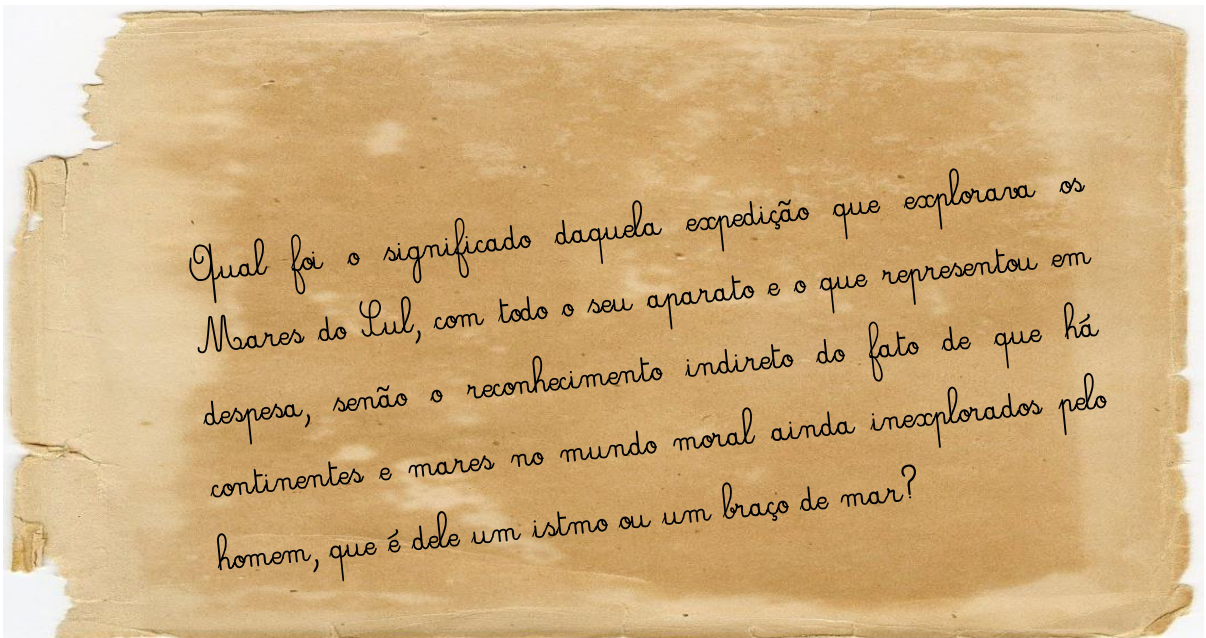 Qual foi o significado daquela expedição que explorava os
Mares do Sul, com todo o seu aparato e o que representou em
despesa, senão o reconhecimento indireto do fato de que há
continentes e mares no mundo moral ainda inexplorados pelo
homem, que é dele um istmo ou um braço de mar?